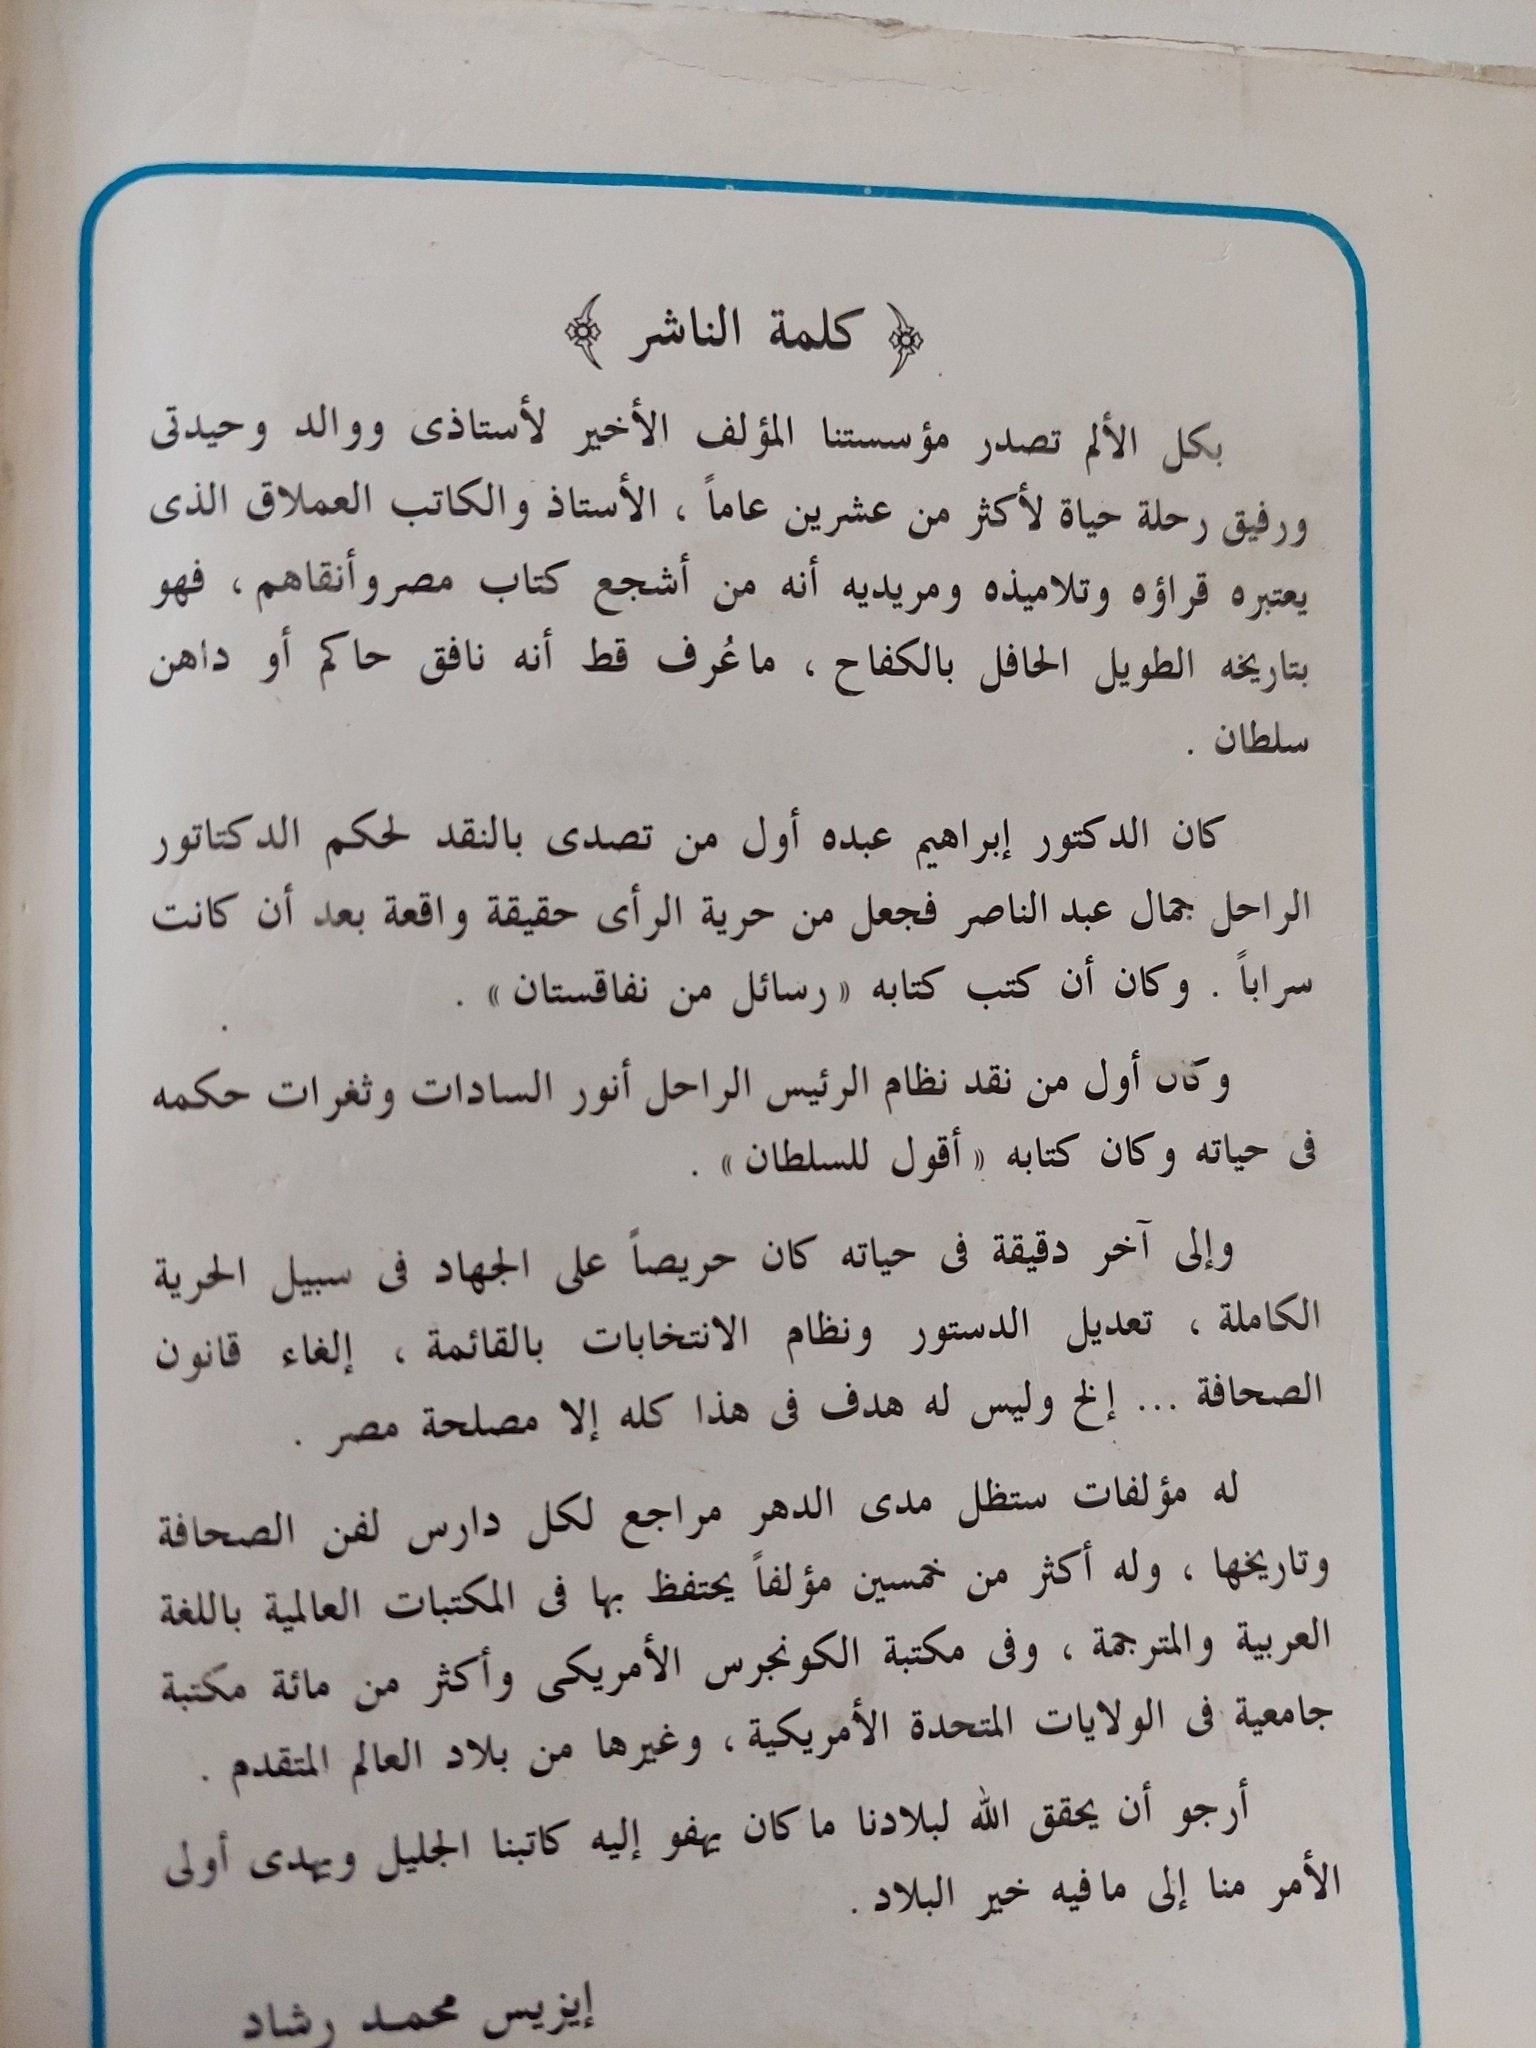 كلمة الناشر
بكل الألم تصدر مؤسستنا المؤلف الأخير لأستاذى ووالد وحيدتى
ورفيق رحلة حياة لأكثر من عشرين عاماً ، الأستاذ والكاتب العملاق الذى
يعتبره قراؤه وتلاميذه ومريديه أنه من أشجع كتاب مصر وأنقاهم ، فهو
بتاريخه الطويل الحافل بالكفاح ، ما عُرف قط أنه نافق حاكم أو داهن
سلطان .
كان الدكتور إبراهيم عبده أول من تصدى بالنقد لحكم الدكتاتور
الراحل جمال عبد الناصر فجعل من حرية الرأى حقيقة واقعة بعد أن كانت
سراباً . وكان أن كتب كتابه « رسائل من نفاقستان » .
وكان أول من نقد نظام الرئيس الراحل أنور السادات وثغرات حكمه
فى حياته وكان كتابه « أقول للسلطان » .
وإلى آخر دقيقة فى حياته كان حريصاً على الجهاد فى سبيل الحرية
الكاملة ، تعديل الدستور ونظام الانتخابات بالقائمة ، إلغاء قانون
الصحافة ... إلخ وليس له هدف فى هذا كله إلا مصلحة مصر .
له مؤلفات ستظل مدى الدهر مراجع لكل دارس لفن الصحافة
وتاريخها ، وله أكثر من خمسين مؤلفاً يحتفظ بها فى المكتبات العالمية باللغة
العربية والمترجمة ، وفى مكتبة الكونجرس الأمريكى وأكثر من مائة مكتبة
جامعية فى الولايات المتحدة الأمريكية ، وغيرها من بلاد العالم المتقدم .
أرجو أن يحقق الله لبلادنا ما كان يهفو إليه كاتبنا الجليل ويهدى أولى
الأمر منا إلى ما فيه خير البلاد .
إيزيس محمد رشاد